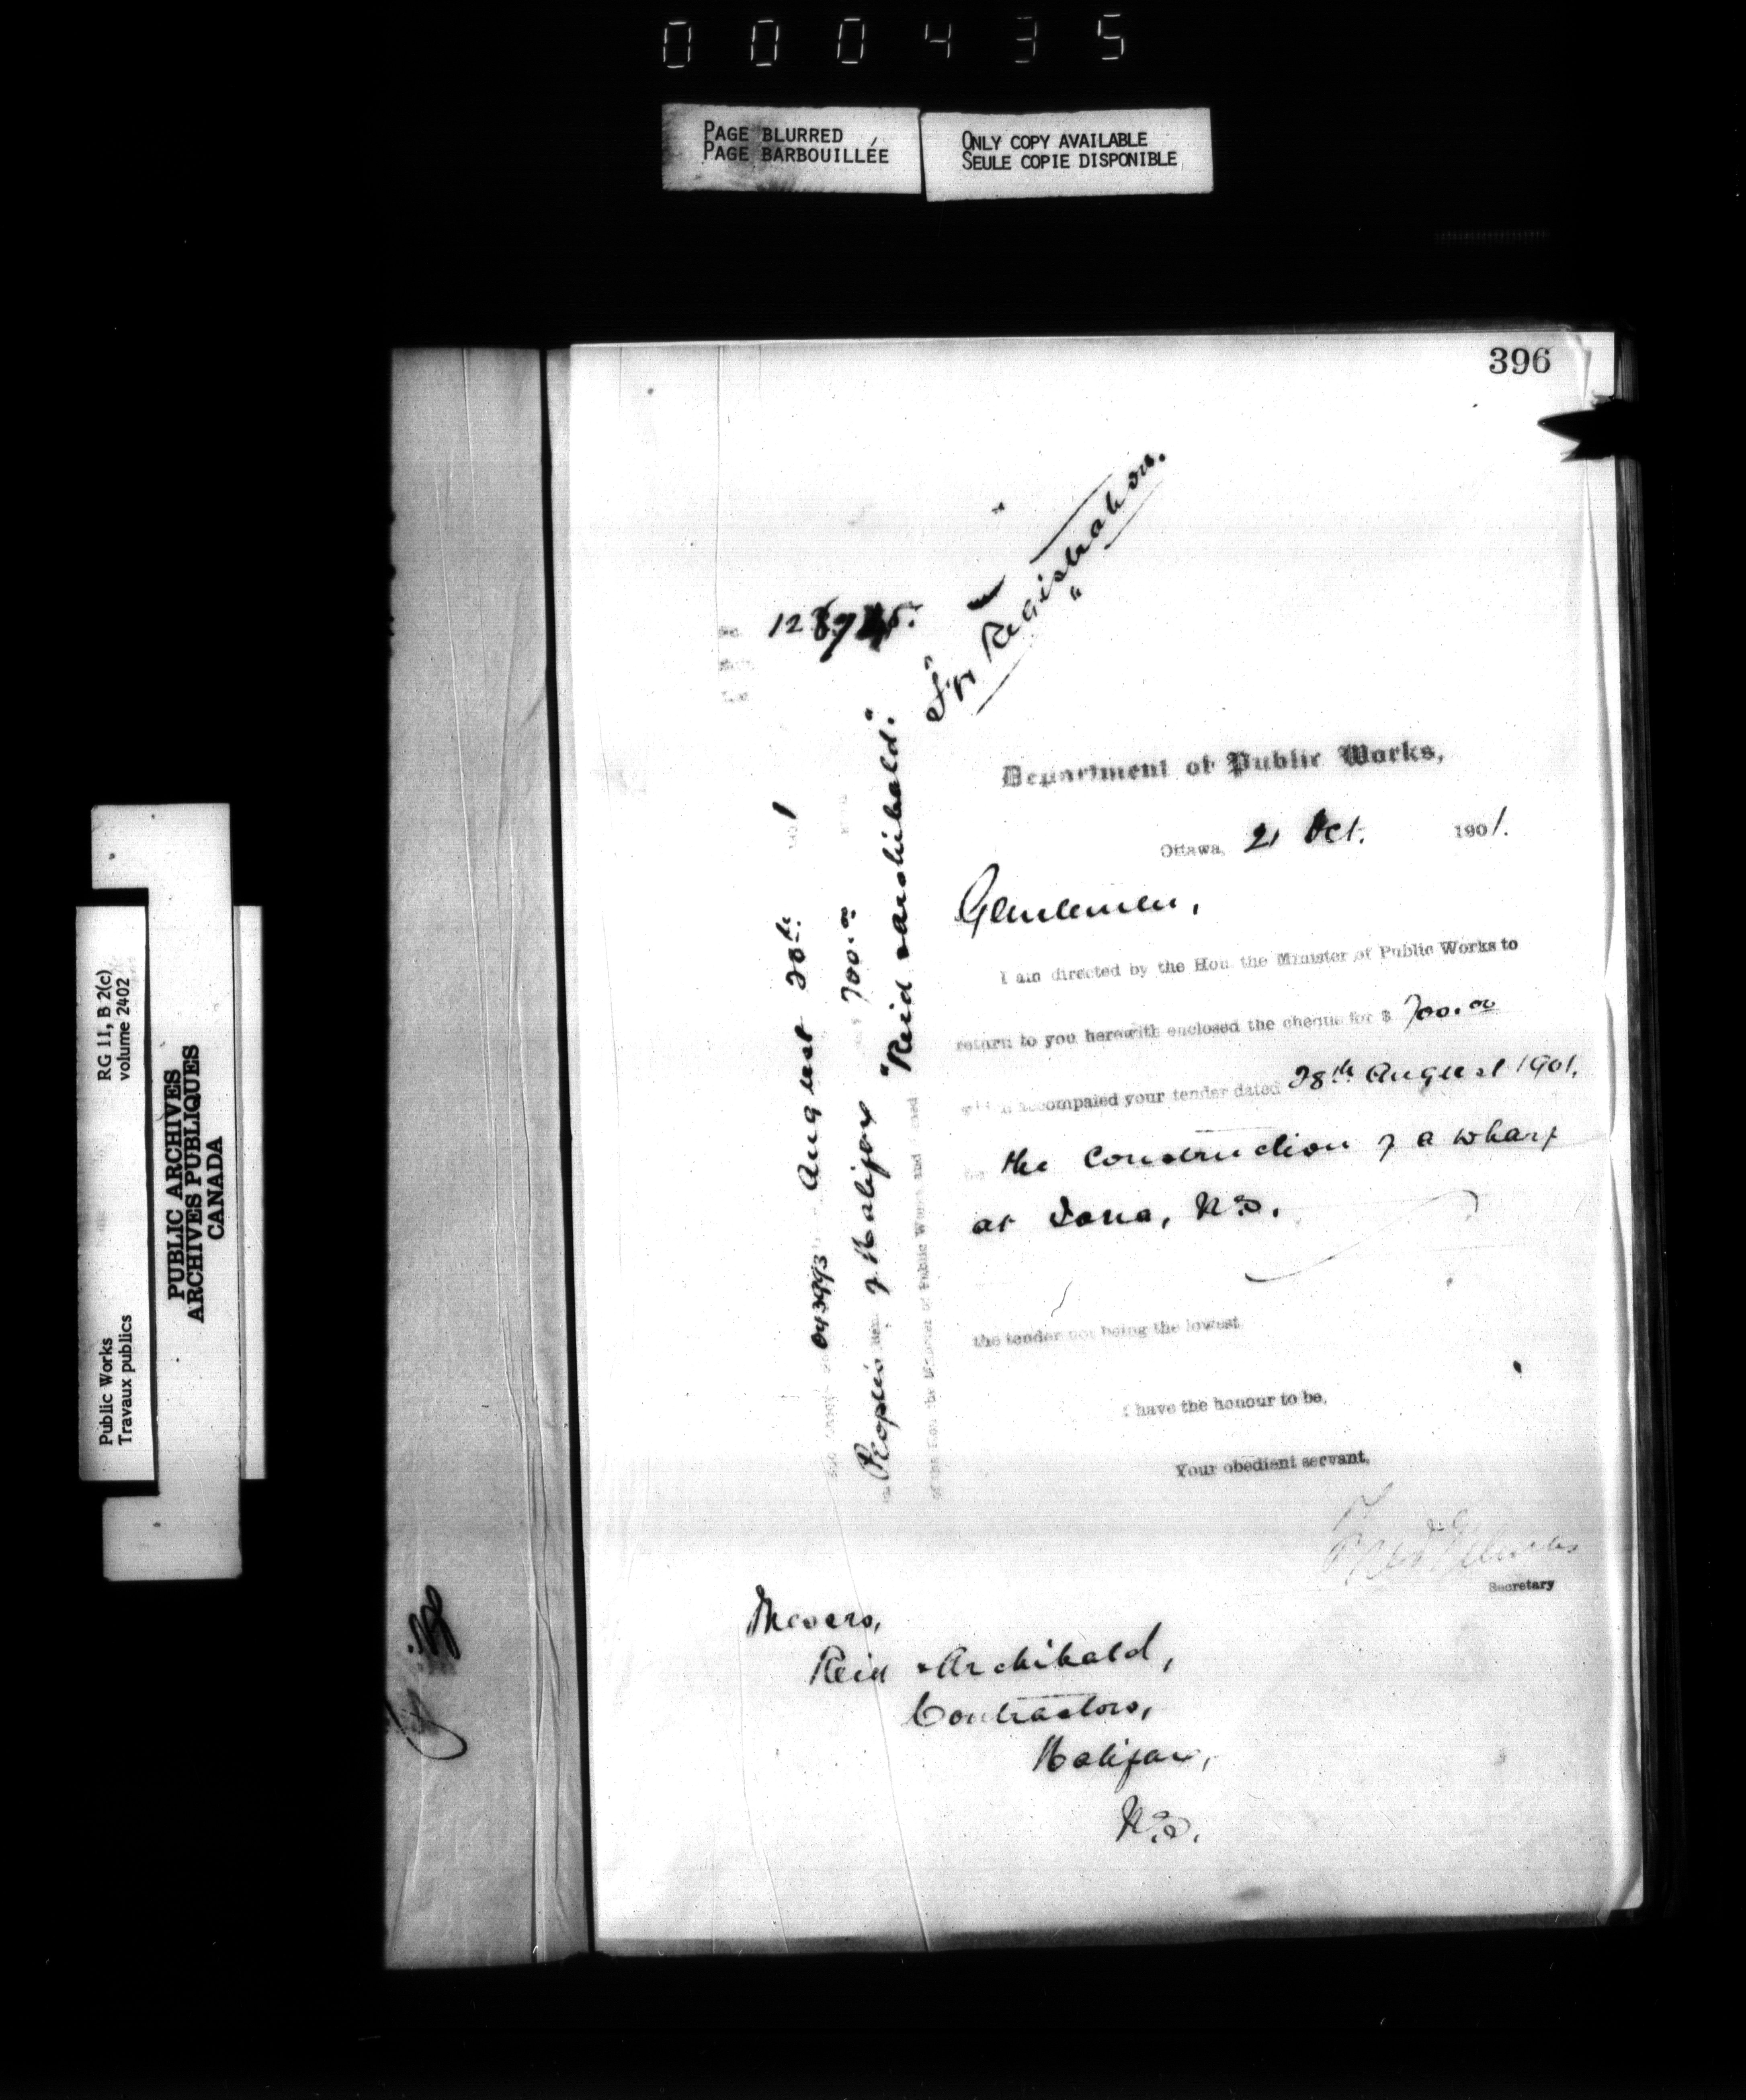 000435
PAGE BLURRED
PAGE BARBOUILLÉE
ONLY COPY AVAILABLE
SEULE COPIE DISPONIBLE
396
"For Registration."
Department of Public Works,
Ottawa, 21 Oct. 1901.
Gentlemen,
I am directed by the Hon. the Minister of Public Works to
return to you herewith enclosed the cheque for $ 700.00
accompaied your tender dated 28th August 1901.
the Construction of a wharf
at Iona, N.S.
the tender not being the lowest
I have the honour to be,
Your obedient servant,
Secretary
Messrs,
Reid & Archibald,
Contractors,
Halifax,
N.S.
August 28th 1
Peoples of Halifax 700.00
of the Hon. the Minister of Public Works and
"Reid & Archibald."
Public Works
Travaux publics
RG 11, B 2(c)
volume 2402
PUBLIC ARCHIVES
ARCHIVES PUBLIQUES
CANADA